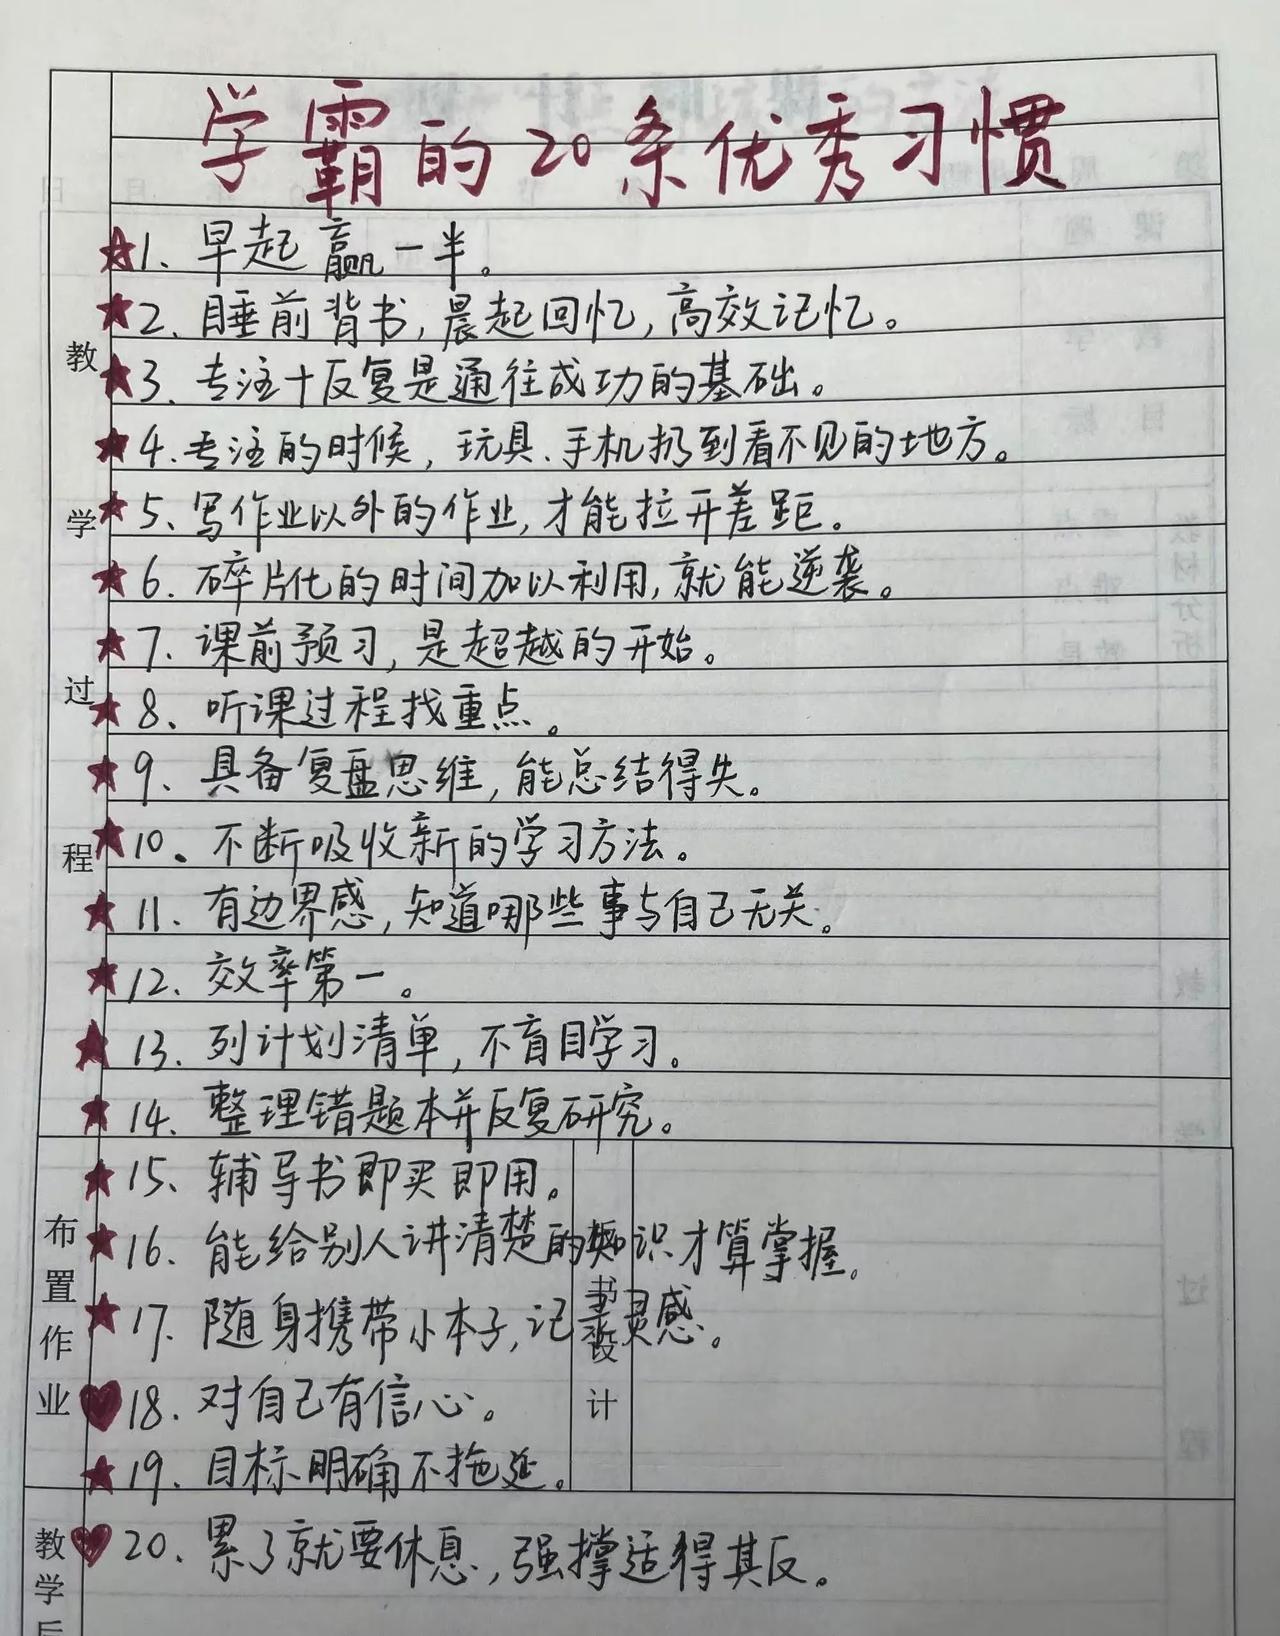 学霸的20条优秀习惯
1、早起赢一半。
2、睡前背书，晨起回忆，高效记忆。
3、专注+反复是通往成功的基础。
4、专注的时候，玩具、手机扔到看不见的地方。
5、写作业以外的作业，才能拉开差距。
6、碎片化的时间加以利用，就能逆袭。
7、课前预习，是超越的开始。
8、听课过程找重点。
9、具备复盘思维，能总结得失。
10、不断吸收新的学习方法。
11、有边界感，知道哪些事与自己无关。
12、效率第一。
13、列计划清单，不盲目学习。
14、整理错题本并反复研究。
15、辅导书即买即用。
16、能给别人讲清楚的知识才算掌握。
17、随身携带小本子，记录灵感。
18、对自己有信心。
19、目标明确不拖延。
20、累了就要休息，强撑适得其反。
教学过程
布置作业
书设计
教学后